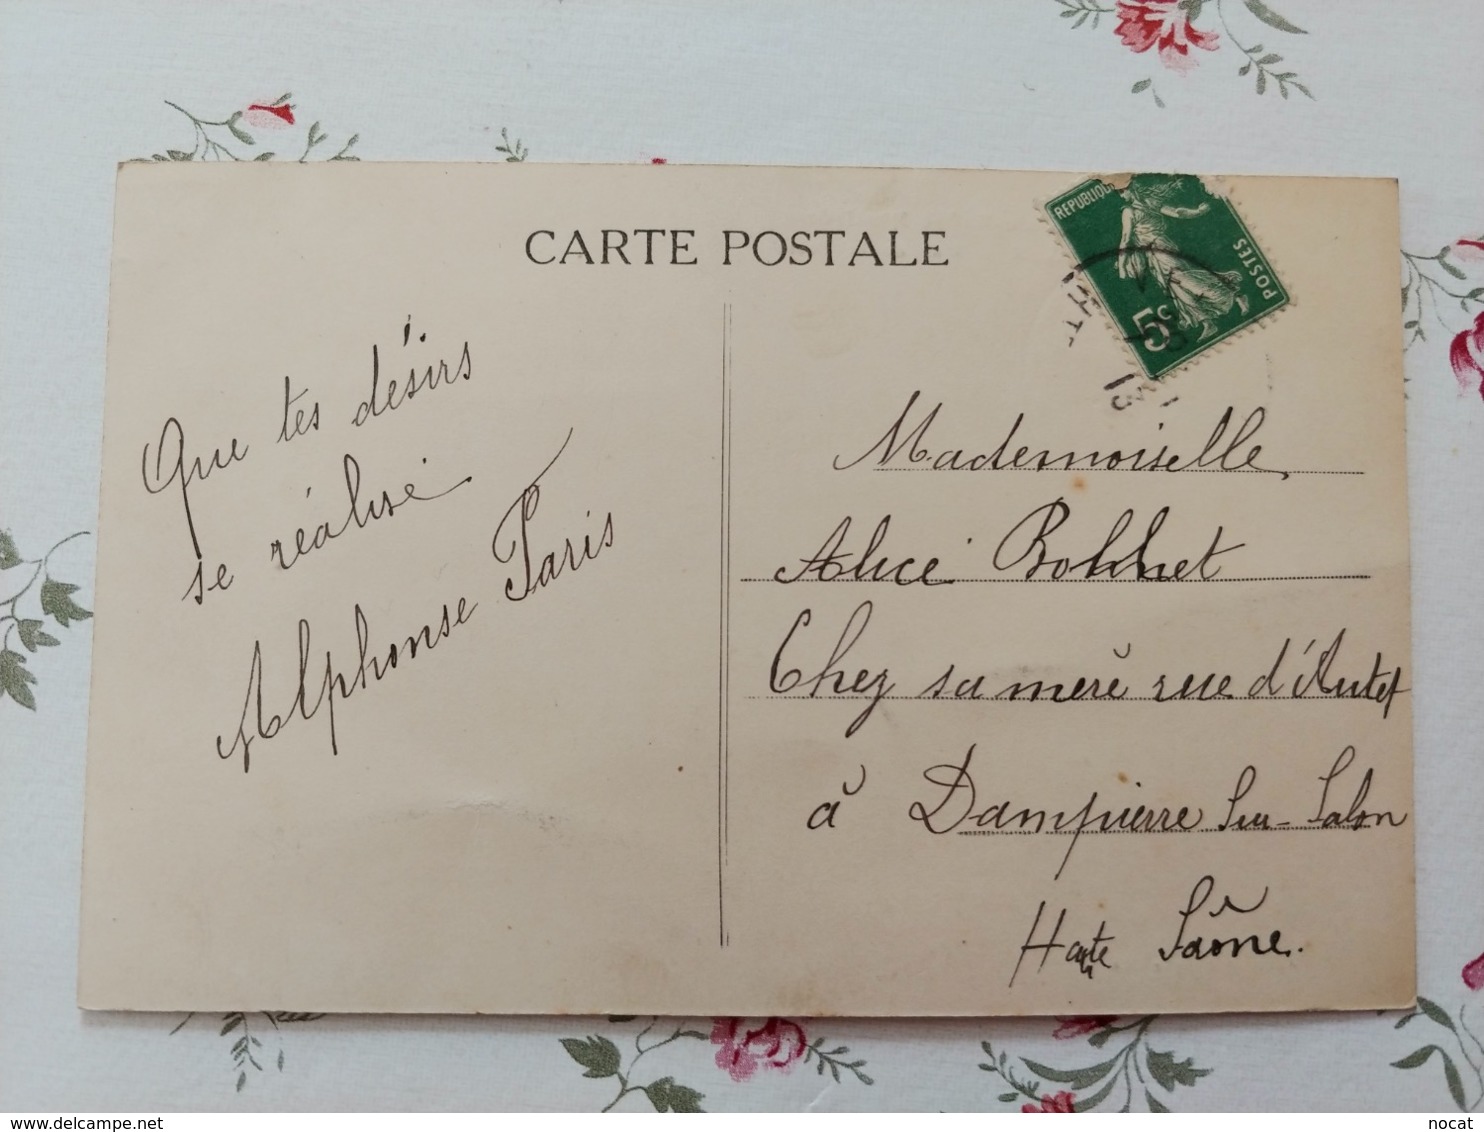 CARTE POSTALE
REPUBLIQUE
POSTES
5c
13
Que tes désirs
se réalise
Alphonse Paris
Mademoiselle
Alice Bonnet
Chez sa mère rue d'Autet
à Dampierre Sur-Salon
Haute Saône.
delcampe.net
nocat